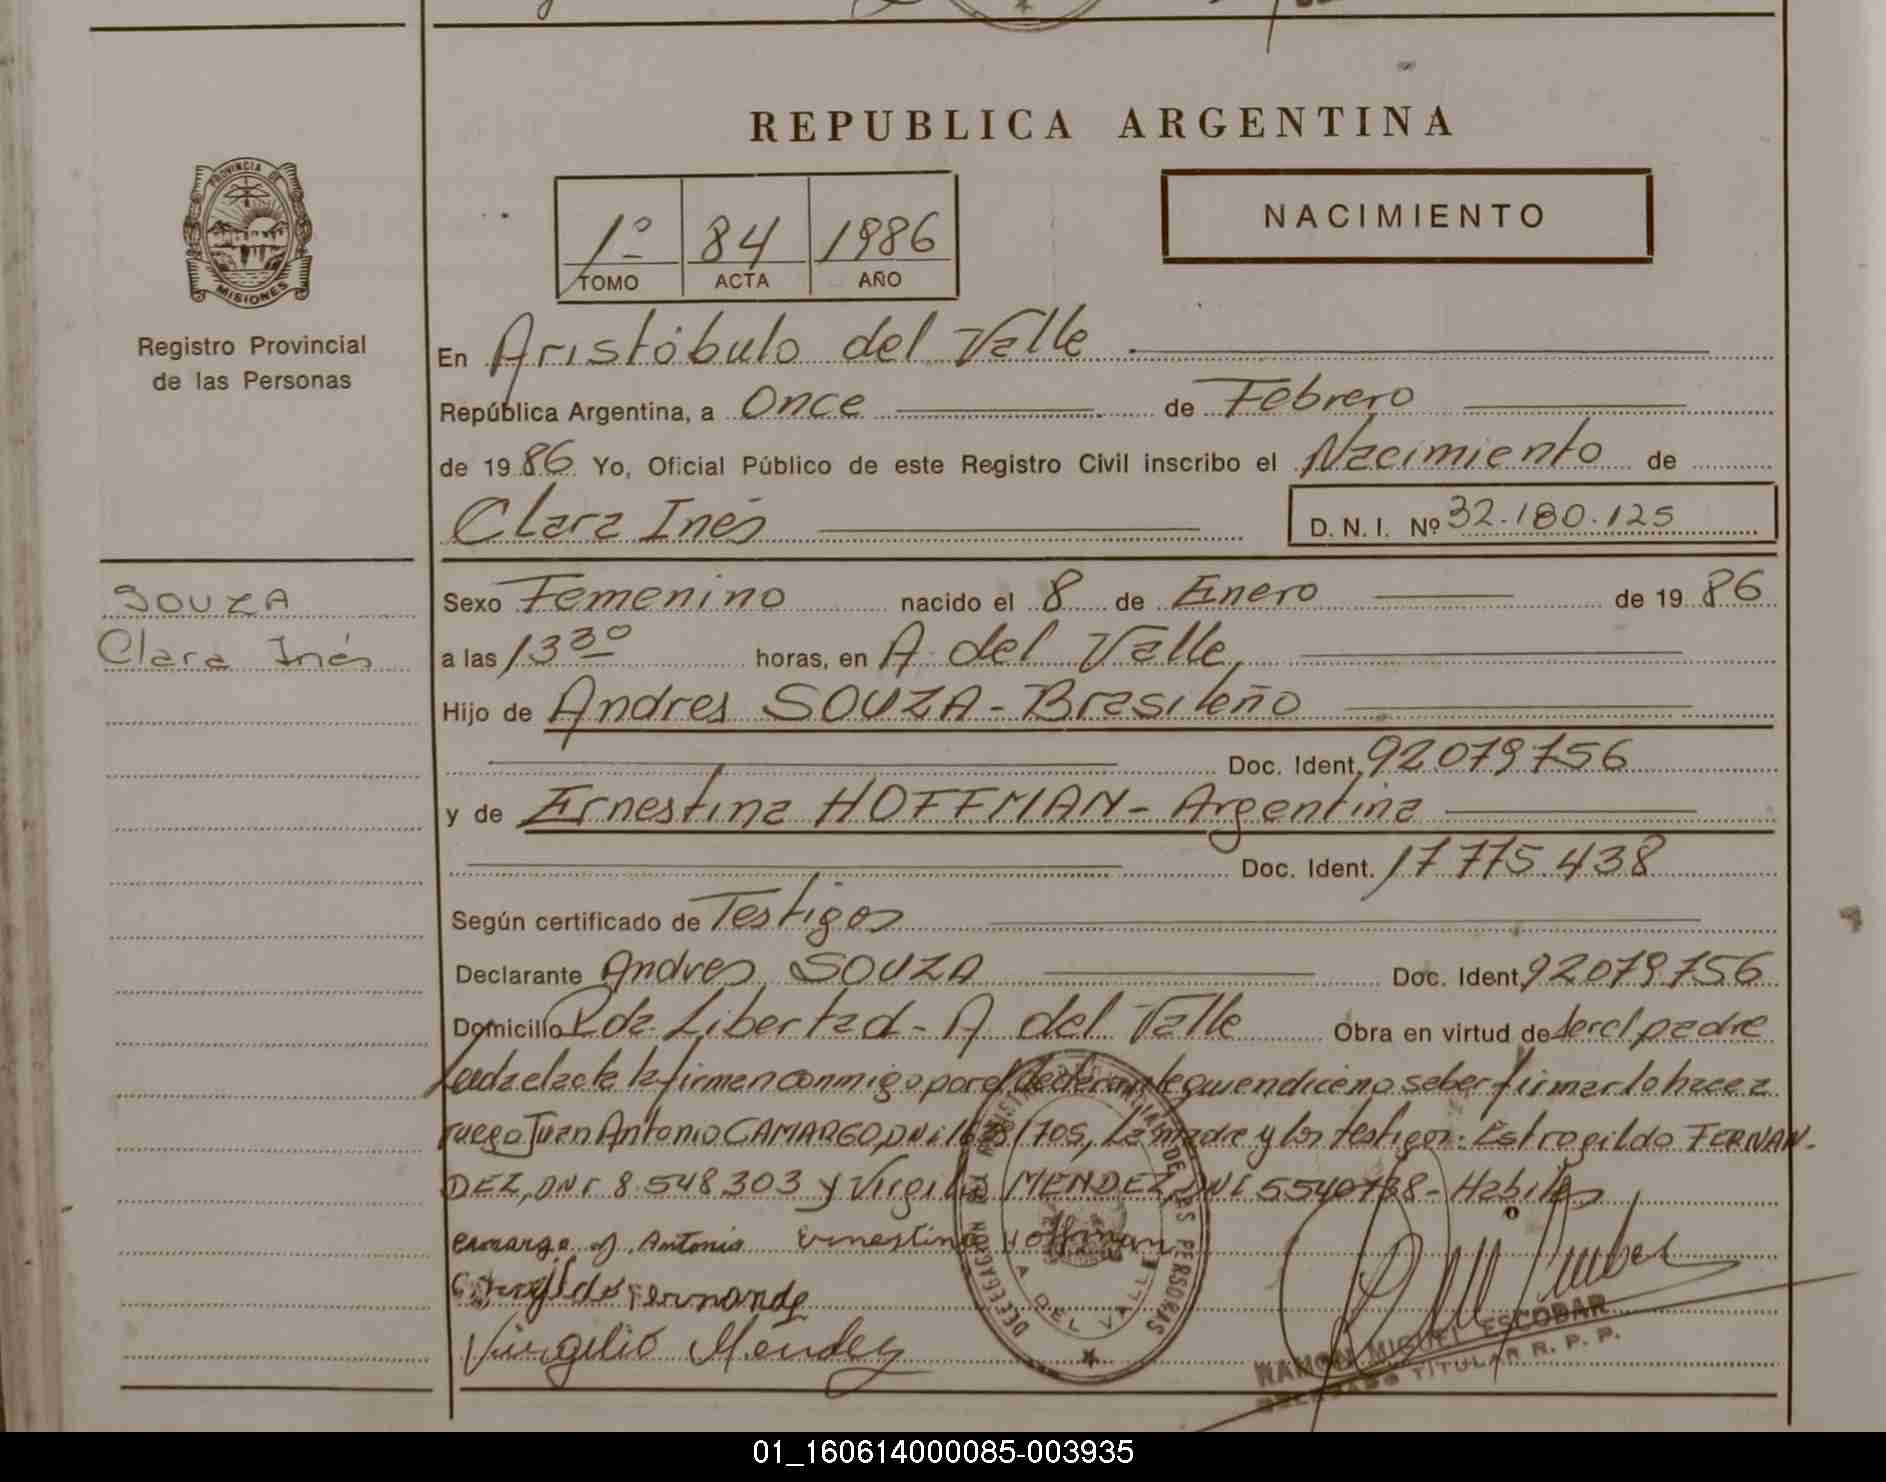 REPUBLICA ARGENTINA
PROVINCIA DE
MISIONES
Registro Provincial
de las Personas
1º 84 1986
TOMO ACTA AÑO
NACIMIENTO
En Aristóbulo del Valle
República Argentina, a Once de Febrero
de 1986 Yo, Oficial Público de este Registro Civil inscribo el Nacimiento de
Clara Inés
D. N. I. Nº 32.180.125
SOUZA
Clara Inés
Sexo Femenino nacido el 8 de Enero de 1986
a las 13 30 horas, en A. del Valle,
Hijo de Andres SOUZA - Brasileño
Doc. Ident. 92079756
y de Ernestina HOFFMAN - Argentina
Doc. Ident. 17 775.438
Según certificado de Testigos
Declarante Andres SOUZA Doc. Ident. 92079756
Domicilio Pda. Libertad - A del Valle Obra en virtud de ser el padre
Leida el acta la firman conmigo por el declarante quien dice no saber firmar lo hace a
ruego Juan Antonio CAMARGO, DNI 705, La madre y los testigos: Estrogildo FERNAN-
DEZ, DNI 8.548303 y Virgilio MENDEZ, DNI 5540788 - Habiles
camargo J. Antonio Ernestina Hoffman
Fernande
Virgilio Mendez
DELEGACION DEL REGISTRO PROVINCIAL DE LAS PERSONAS
A. DEL VALLE
RAMON MIGUEL ESCOBAR
DELEGADO TITULAR R. P. P.
01_160614000085-003935